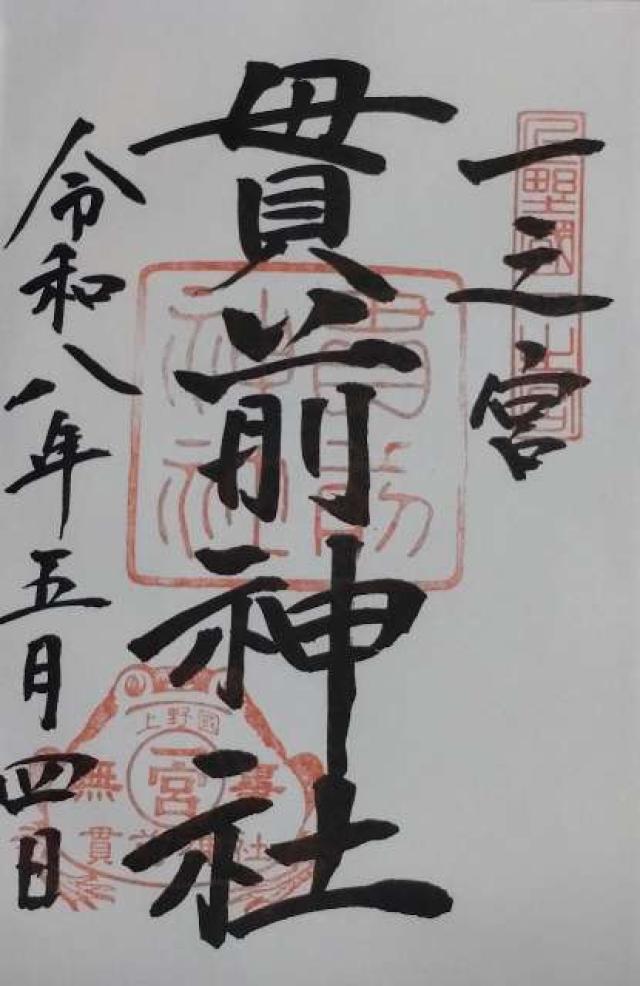 一之宮
貫前神社
令和八年五月四日
貫前
神社
上野國
一宮
無事
貫前神社